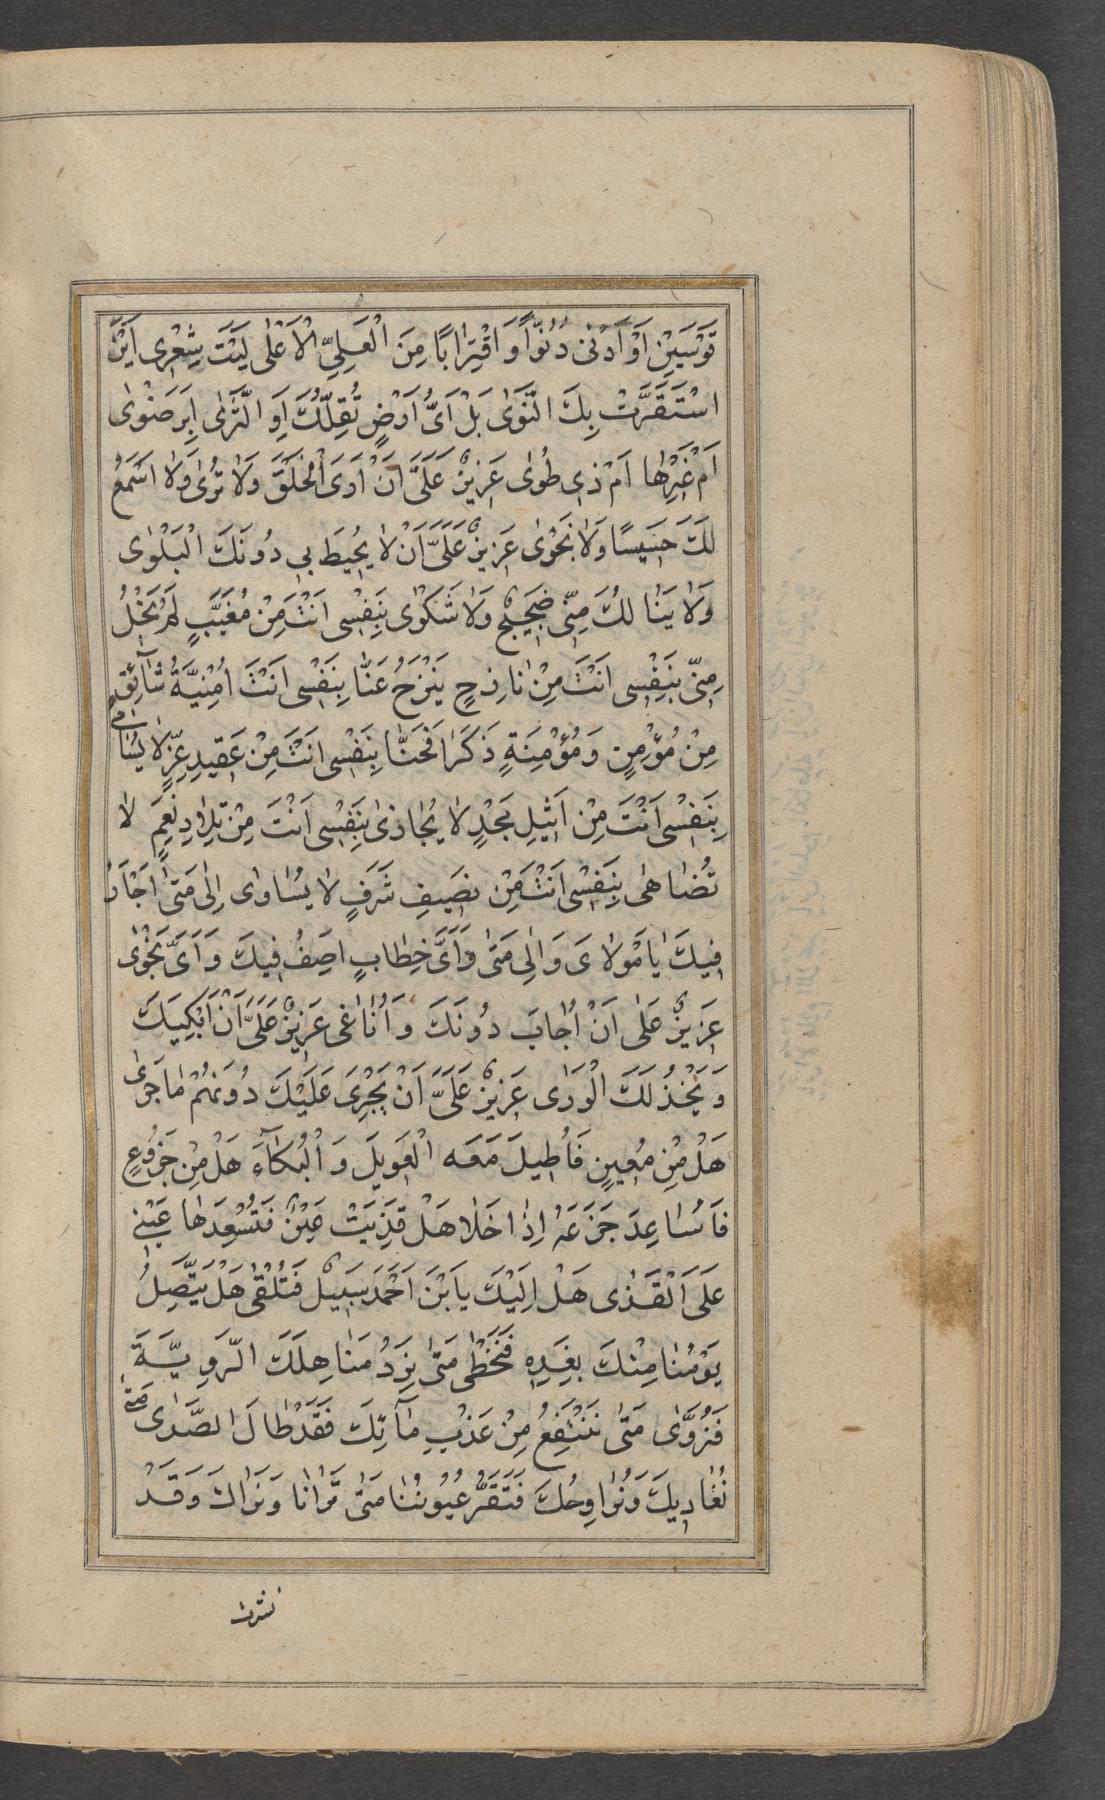 قَوْسَيْنِ اَوْ اَدْنٰى دُنُوّاً وَ اقْتِرٰابًا مِنَ الْعَلِيِّ الْاَعْلٰى لَيْتَ شِعْرِى اَيْنَ
اسْتَقَرَّتْ بِكَ النَّوىٰ بَلْ اَىُّ اَرْضٍ تُقِلُّكَ اَوِ الثَّرٰى اَبِرَضْوىٰ
اَمْ غَيْرِهٰا اَمْ ذِى طُوىٰ عَزِيزٌ عَلَىَّ اَنْ اَرَى الْخَلْقَ وَلاٰ تُرىٰ وَلاٰ اَسْمَعُ
لَكَ حَسِيسًا وَلاٰ نَجْوىٰ عَزِيزٌ عَلَىَّ اَنْ لاٰ يُحِيطَ بِى دُونَكَ الْبَلْوىٰ
وَلاٰ يَنٰالُكَ مِنّى ضَجِيجٌ وَلاٰ شَكْوىٰ بِنَفْسِى اَنْتَ مِنْ مُغَيَّبٍ لَمْ يَخْلُ
مِنّٰا بِنَفْسِى اَنْتَ مِنْ نٰازِحٍ يَنْزَحُ عَنّٰا بِنَفْسِى اَنْتَ اُمْنِيَّةُ شٰآئِقٍ
مِنْ مُؤْمِنٍ وَ مُؤْمِنَةٍ ذَكَرٰا فَحَنّٰا بِنَفْسِى اَنْتَ مِنْ عَقِيدِ عِزٍّ لاٰ يُسٰامىٰ
بِنَفْسِى اَنْتَ مِنْ اَثِيلِ مَجْدٍ لاٰ يُجٰاذىٰ بِنَفْسِى اَنْتَ مِنْ تِلاٰدِ نِعَمٍ لاٰ
تُضٰاهىٰ بِنَفْسِى اَنْتَ مِنْ نَصِيفِ شَرَفٍ لاٰ يُسٰاوىٰ اِلىٰ مَتىٰ اَجْاَرُ
فِيكَ يٰا مَوْلاٰىَ وَ اِلىٰ مَتىٰ وَ اَىَّ خِطٰابٍ اَصِفُ فِيكَ وَ اَىَّ نَجْوىٰ
عَزِيزٌ عَلٰى اَنْ اُجٰابَ دُونَكَ وَ اُنٰاغىٰ عَزِيزٌ عَلَىَّ اَنْ اَبْكِيَكَ
وَ يَخْذُلَكَ الْوَرىٰ عَزِيزٌ عَلَىَّ اَنْ يَجْرِىَ عَلَيْكَ دُونَهُمْ مٰا جَرىٰ
هَلْ مِنْ مُعِينٍ فَاُطِيلَ مَعَهُ الْعَوِيلَ وَ الْبُكٰآءَ هَلْ مِنْ جَزُوعٍ
فَاُسٰاعِدَ جَزَعَهُ اِذٰا خَلاٰ هَلْ قَذِيَتْ عَيْنٌ فَتُسْعِدَهٰا عَيْنِى
عَلَى الْقَذٰى هَلْ اِلَيْكَ يَابْنَ اَحْمَدَ سَبِيلٌ فَتُلْقٰى هَلْ يَتَّصِلُ
يَوْمُنٰا مِنْكَ بِغَدِهِ فَنَحْظٰى مَتىٰ نَرِدُ مَنٰاهِلَكَ الرَّوِيَّةَ
فَنَرْوىٰ مَتىٰ نَنْتَفِعُ مِنْ عَذْبِ مٰآئِكَ فَقَدْ طٰالَ الصَّدٰى مَتىٰ
نُغٰادِيكَ وَ نُرٰاوِحُكَ فَتَقَرَّ عُيُونُنٰا مَتىٰ تَرٰانٰا وَ نَرٰاكَ وَ قَدْ
نشرت